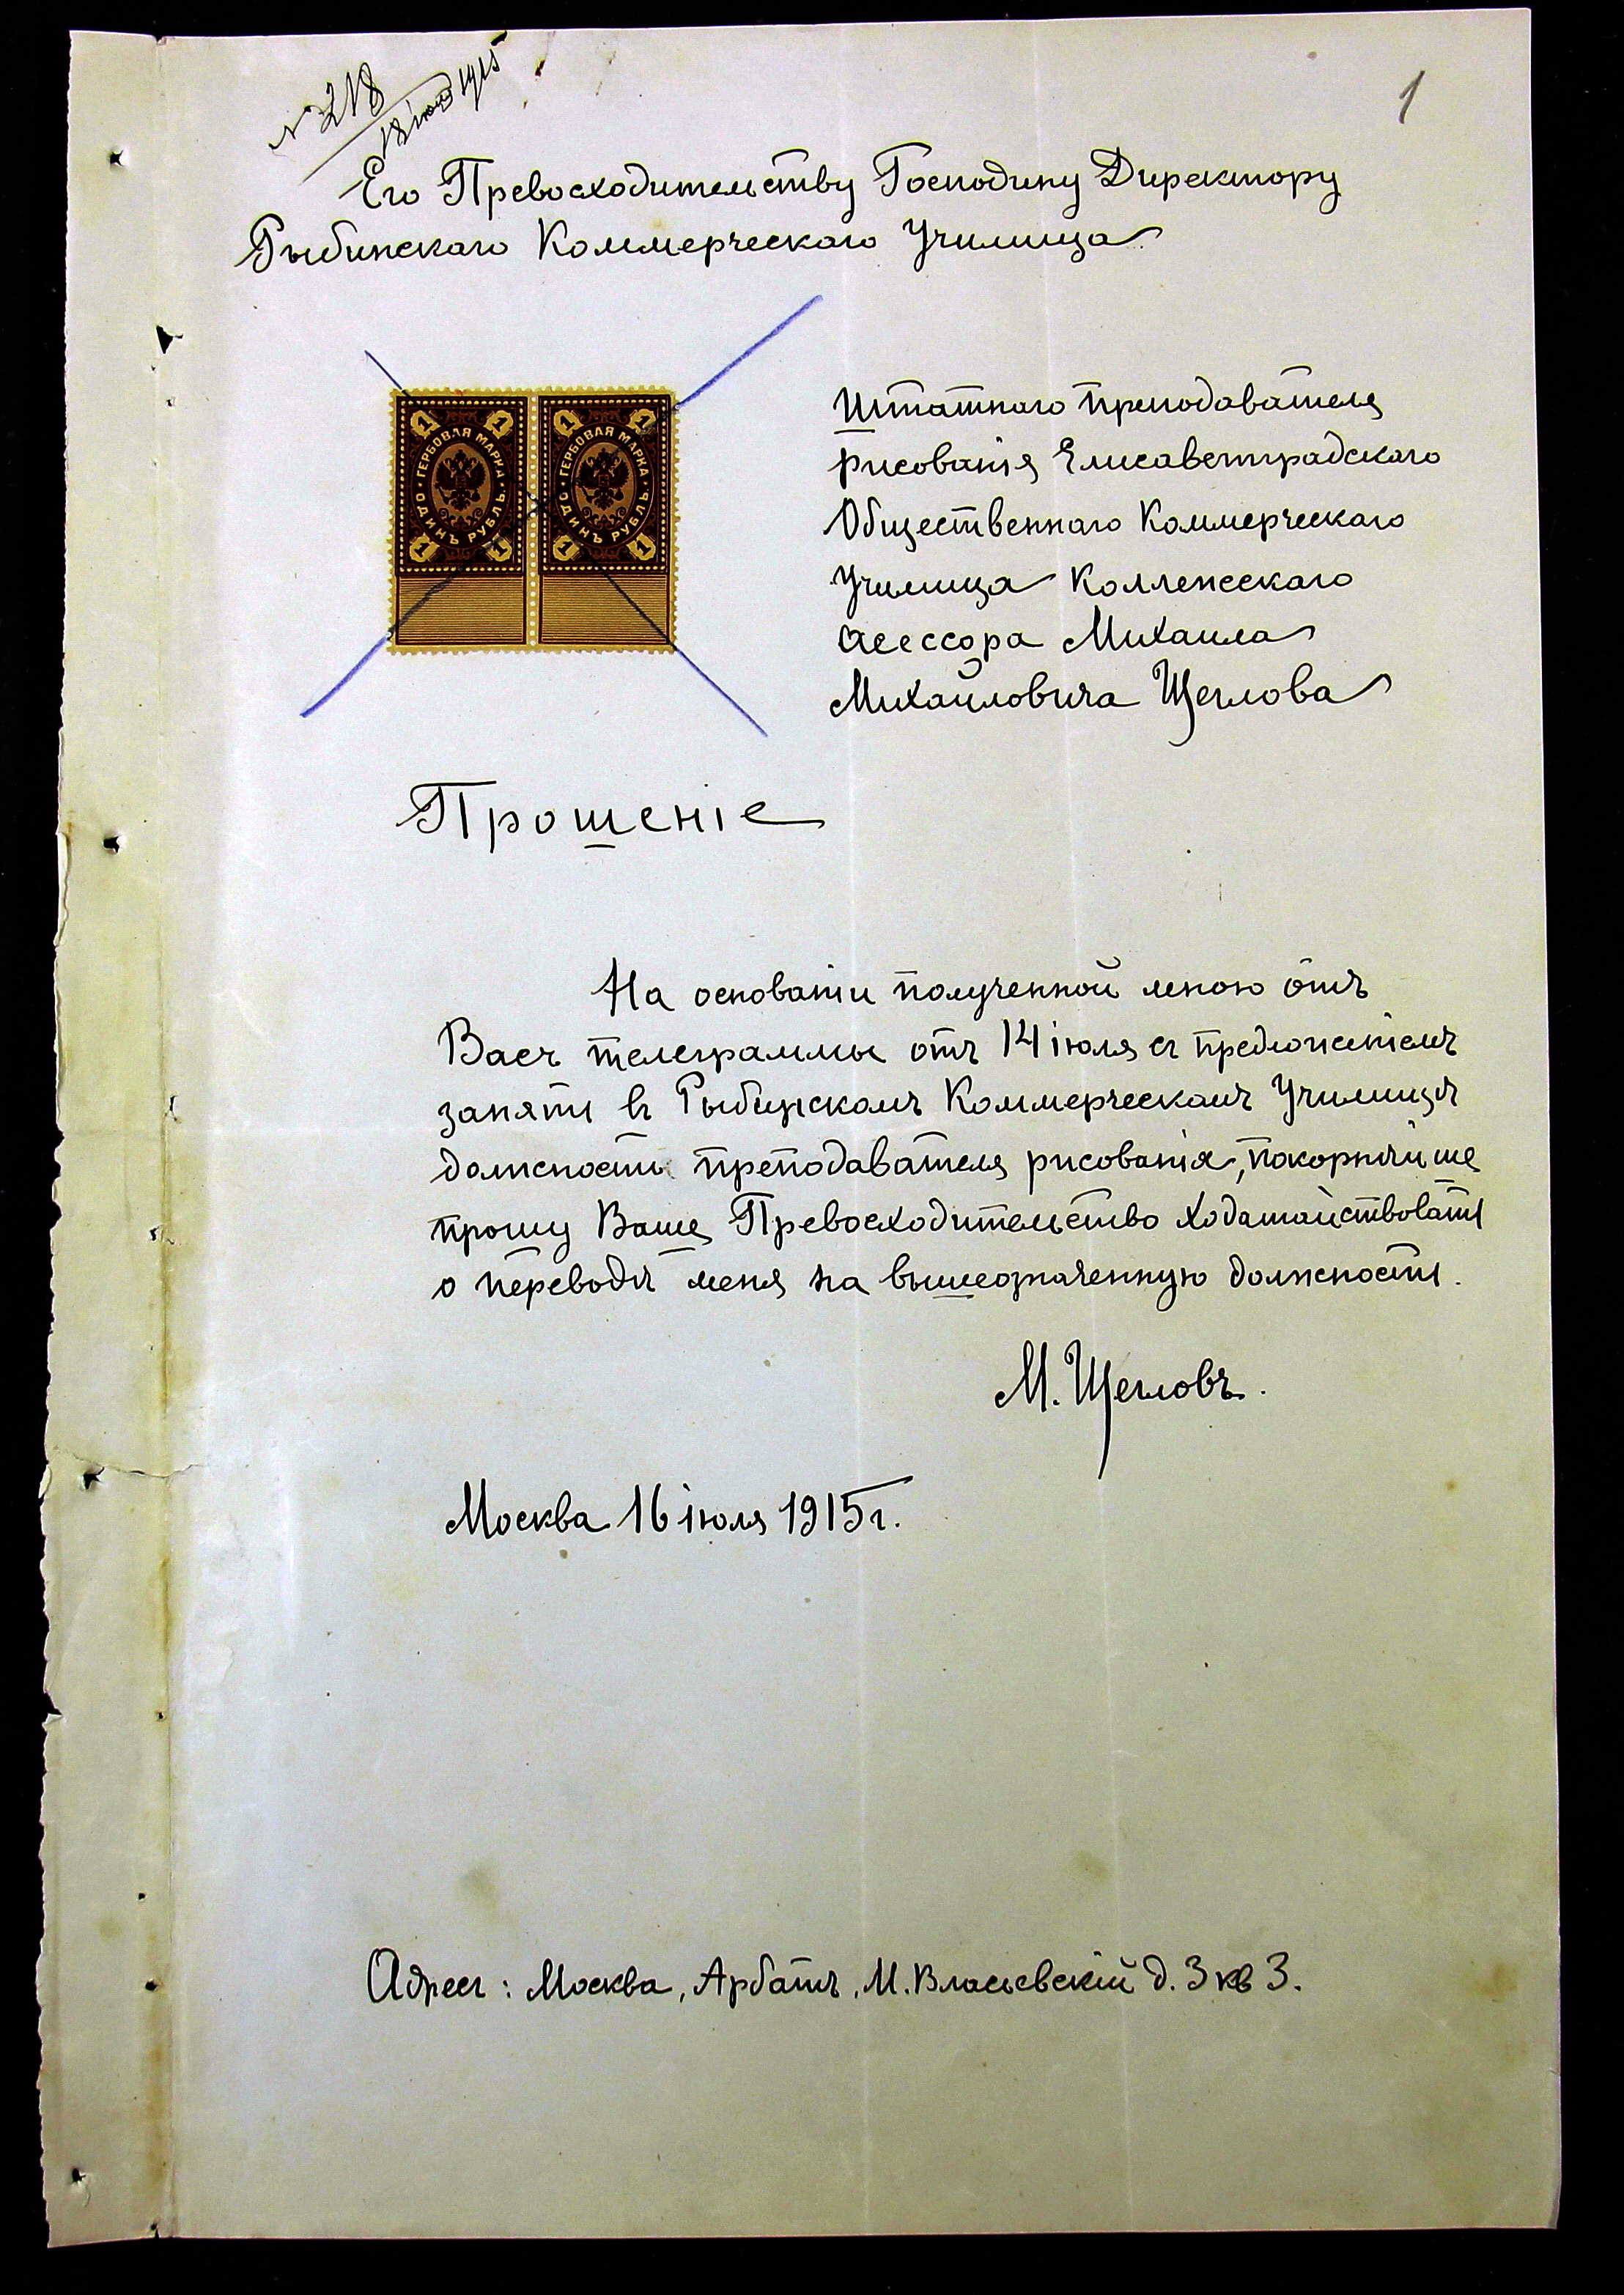 № 218
18 июля 1915
1
Его Превосходительству Господину Директору
Рыбинскаго Коммерческаго Училища
1 1 1 1
ГЕРБОВАЯ МАРКА ГЕРБОВАЯ МАРКА
ОДИНЪ РУБЛЬ ОДИНЪ РУБЛЬ
1 1 1 1
Штатнаго преподавателя
рисованія Елисаветградскаго
Общественнаго Коммерческаго
Училища Коллежскаго
Асессора Михаила
Михайловича Щеглова
Прошеніе
На основаніи полученной мною отъ
Васъ телеграммы отъ 14 іюля съ предложеніемъ
занять въ Рыбинскомъ Коммерческомъ Училищѣ
должность преподавателя рисованія, покорнѣйше
прошу Ваше Превосходительство ходатайствовать
о переводѣ меня на вышеозначенную должность.
М. Щегловъ.
Москва 16 іюля 1915 г.
Адресъ: Москва, Арбатъ, М. Власьевскій д. 3 кв 3.